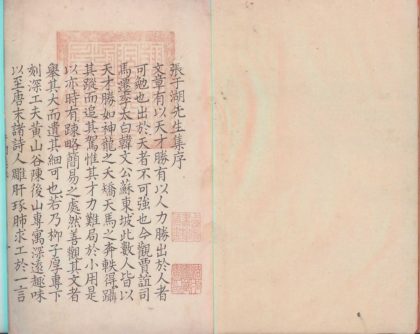 張于湖先生集序
文章有以天才勝有以人力勝出於人者
可勉也出於天者不可強也今觀賈誼司
馬遷李太白韓文公蘇東坡此數人皆以
天才勝如神龍之夭矯天馬之奔軼得躡
其蹤而追其駕惟其才力難局於小用是
以亦時有踈略簡易之處然善觀其文者
舉其大而遺其細可也若乃柳子厚專下
刻深工夫黃山谷陳後山專寓深遠趣味
以至唐末諸詩人雕肝琢肺求工於一言